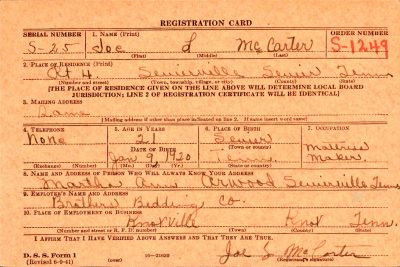 REGISTRATION CARD
SERIAL NUMBER 1. NAME (Print) ORDER NUMBER
S-25 Joe McCarter S-1249
(First) (Middle) (Last)
2. PLACE OF RESIDENCE (Print)
Rt 4 Sevierville Sevier Tenn
(Number and street) (Town, township, village, or city) (County) (State)
[THE PLACE OF RESIDENCE GIVEN ON THE LINE ABOVE WILL DETERMINE LOCAL BOARD
JURISDICTION; LINE 2 OF REGISTRATION CERTIFICATE WILL BE IDENTICAL]
3. MAILING ADDRESS
Same
[Mailing address if other than place indicated on line 2. If same insert word same]
4. TELEPHONE 5. AGE IN YEARS 6. PLACE OF BIRTH 7. OCCUPATION
None 21 Sevier Mattress
DATE OF BIRTH (Town or county)
Jan 9, 1920 Tenn. Maker
(Exchange) (Number) (Mo.) (Day) (Yr.) (State or country)
8. NAME AND ADDRESS OF PERSON WHO WILL ALWAYS KNOW YOUR ADDRESS
Martha Ann Arwood Sevierville Tenn
9. EMPLOYER'S NAME AND ADDRESS
Brothers Bedding Co.
10. PLACE OF EMPLOYMENT OR BUSINESS
Knoxville Knox Tenn.
(Number and street or R. F. D. number) (Town) (County) (State)
I AFFIRM THAT I HAVE VERIFIED ABOVE ANSWERS AND THAT THEY ARE TRUE.
D. S. S. Form 1 Joe McCarter
(Revised 6-9-41) (Registrant's signature)